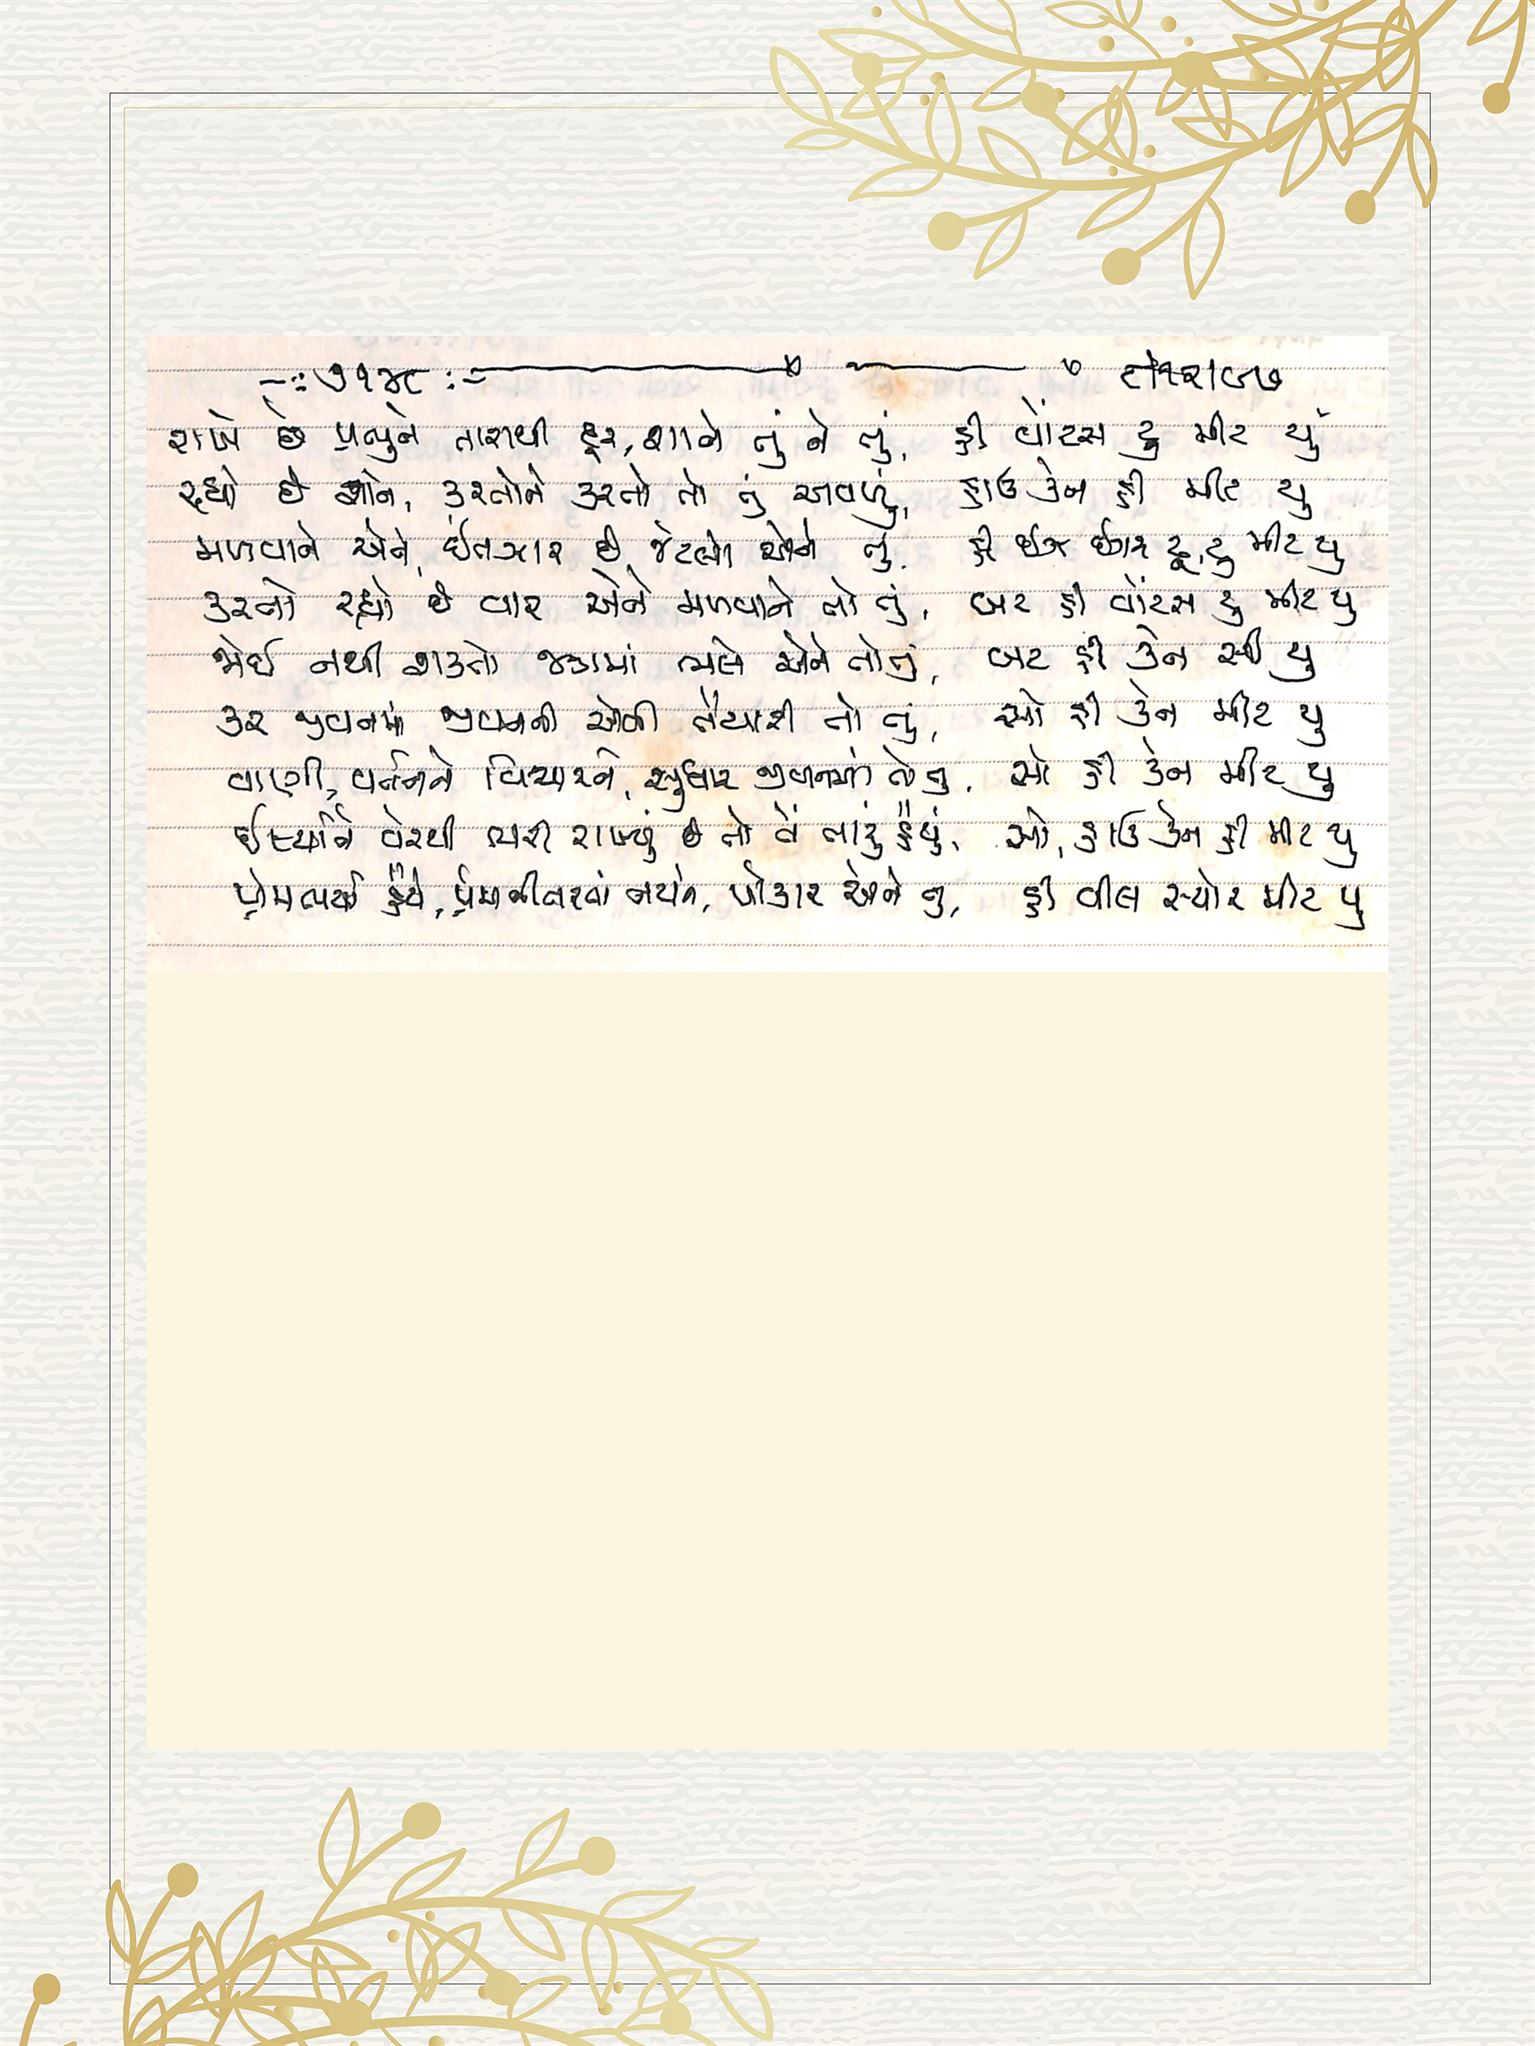 -:: ૭૧૪૮ :-
રાખે છે પ્રભુને તારાથી દૂર, શાને તું ને તું, હી વોંટસ ટુ મીટ યુ
રહ્યો છે શાને, કરતોને કરતો તો તું અવળું, હાઉ કેન હી મીટ યુ
મળવાને એને, ઇંતઝાર છે, જેટલો એને તું. હી ઇઝ ઇગર ટૂ, ટુ મીટ યુ
કરતો રહ્યો છે વાર એને મળવાને તો તું, બટ હી વોંટસ ટુ મીટ યુ
જોઈ નથી શકતો જગમાં ભલે એને તો તું, બટ હી કેન સી યુ
કર જીવનમાં જીવનની એવી તૈયારી તો તું, સો હી કેન મીટ યુ
વાણી, વર્તનને વિચારને, સુધાર જીવનમાં તો તુ. સો હી કેન મીટ યુ
ઈર્ષ્યાને વેરથી ભરી રાખ્યું છે તો તેં તારું હૈયું, સો, હાઉ કેન હી મીટ યુ
પ્રેમભર્યા હૈયે, પ્રેમ નીતરતાં નયને, પોકાર એને તુ, હી વીલ સ્યોર મીટ યુ